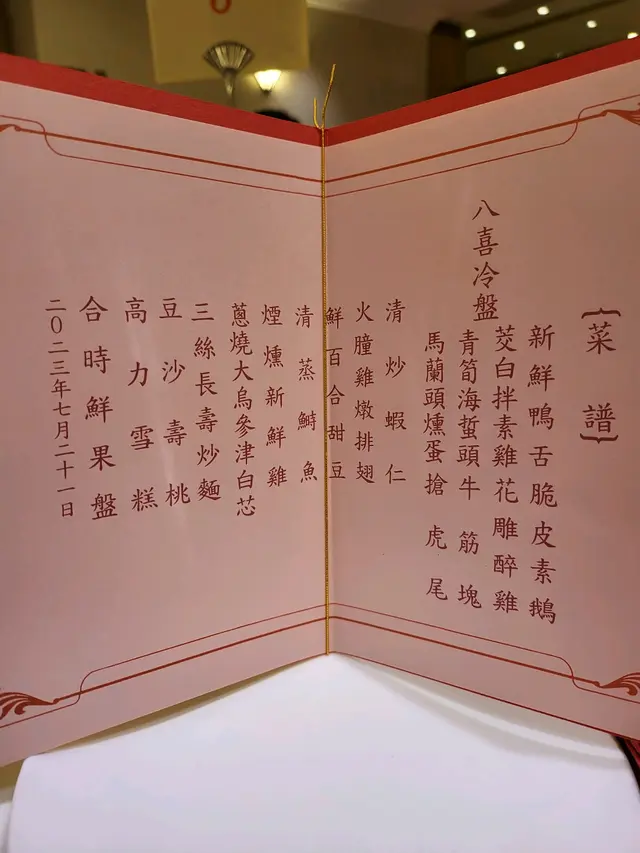 {菜譜}
八喜冷盤
新鮮鴨舌脆皮素鵝
茭白拌素雞花雕醉雞
青筍海蜇頭牛筋塊
馬蘭頭燻蛋搶虎尾
清炒蝦仁
火朣雞燉排翅
鮮百合甜豆
清蒸鰣魚
煙燻新鮮雞
蔥燒大烏參津白芯
三絲長壽炒麵
豆沙壽桃
高力雪糕
合時鮮果盤
二〇二三年七月二十一日